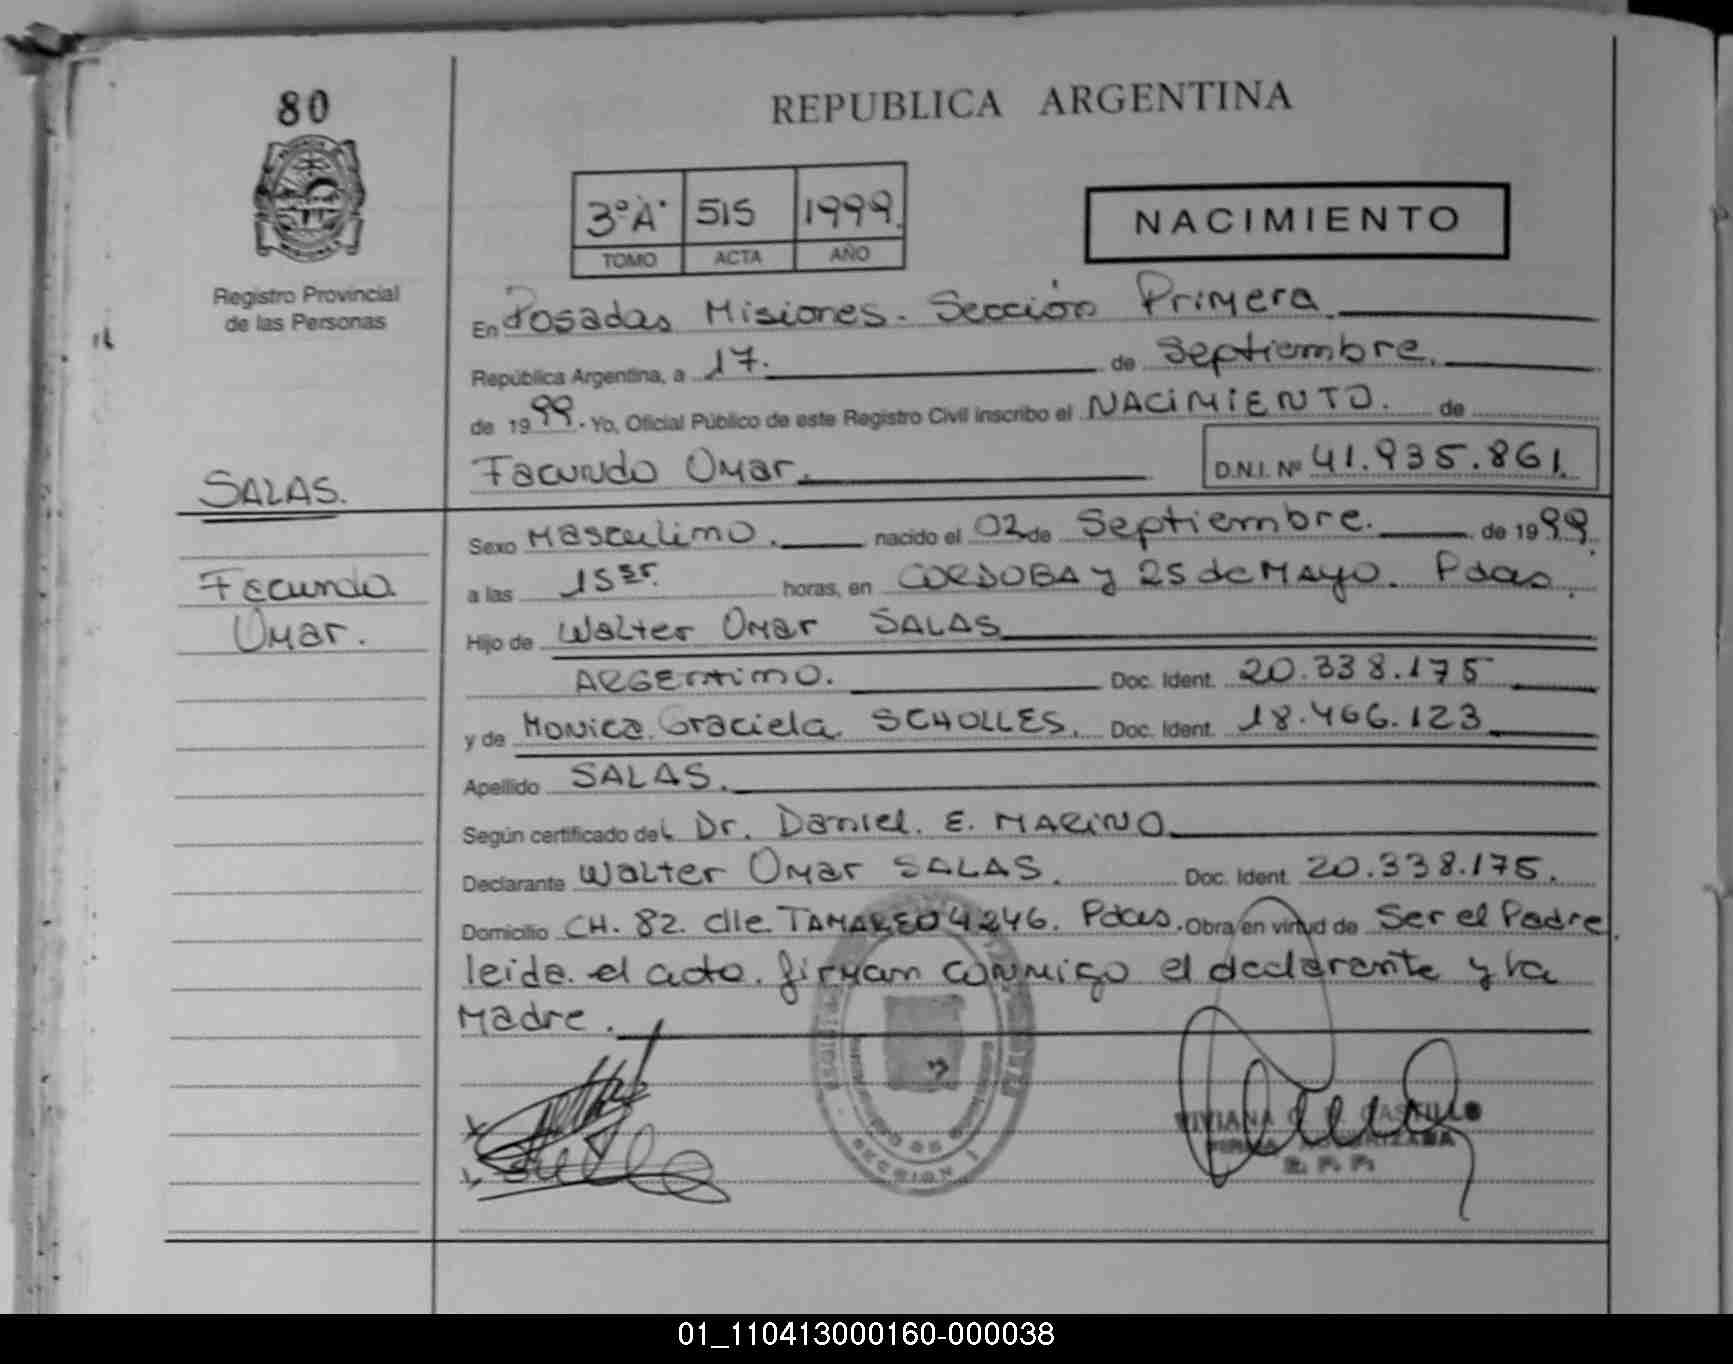 80
REPUBLICA ARGENTINA
3º A 515 1999.
TOMO ACTA AÑO
NACIMIENTO
Registro Provincial
de las Personas
En Posadas Misiones. Sección Primera.
República Argentina, a 17. de Septiembre.
de 1999. Yo, Oficial Público de este Registro Civil inscribo el NACIMIENTO. de
Facundo Omar. D.N.I. Nº 41.935.861.
SALAS.
Facundo
Omar.
Sexo Masculino. nacido el 02 de Septiembre. de 1999.
a las 15 horas, en CORDOBA y 25 de MAYO. Pdas.
Hijo de Walter Omar SALAS
ARGENTINO. Doc. Ident. 20.338.175
y de Monica Graciela SCHOLLES. Doc. Ident. 18.466.123
Apellido SALAS.
Según certificado del Dr. Daniel. E. MARINO
Declarante Walter Omar SALAS. Doc. Ident. 20.338.175.
Domicilio CH. 82. clle. TAMAREO 4246. Pdas. Obra en virtud de Ser el Padre.
leida el acta. firman conmigo el declarante y la
Madre.
VIVIANA CASTILLO
SECCION 1
01_110413000160-000038